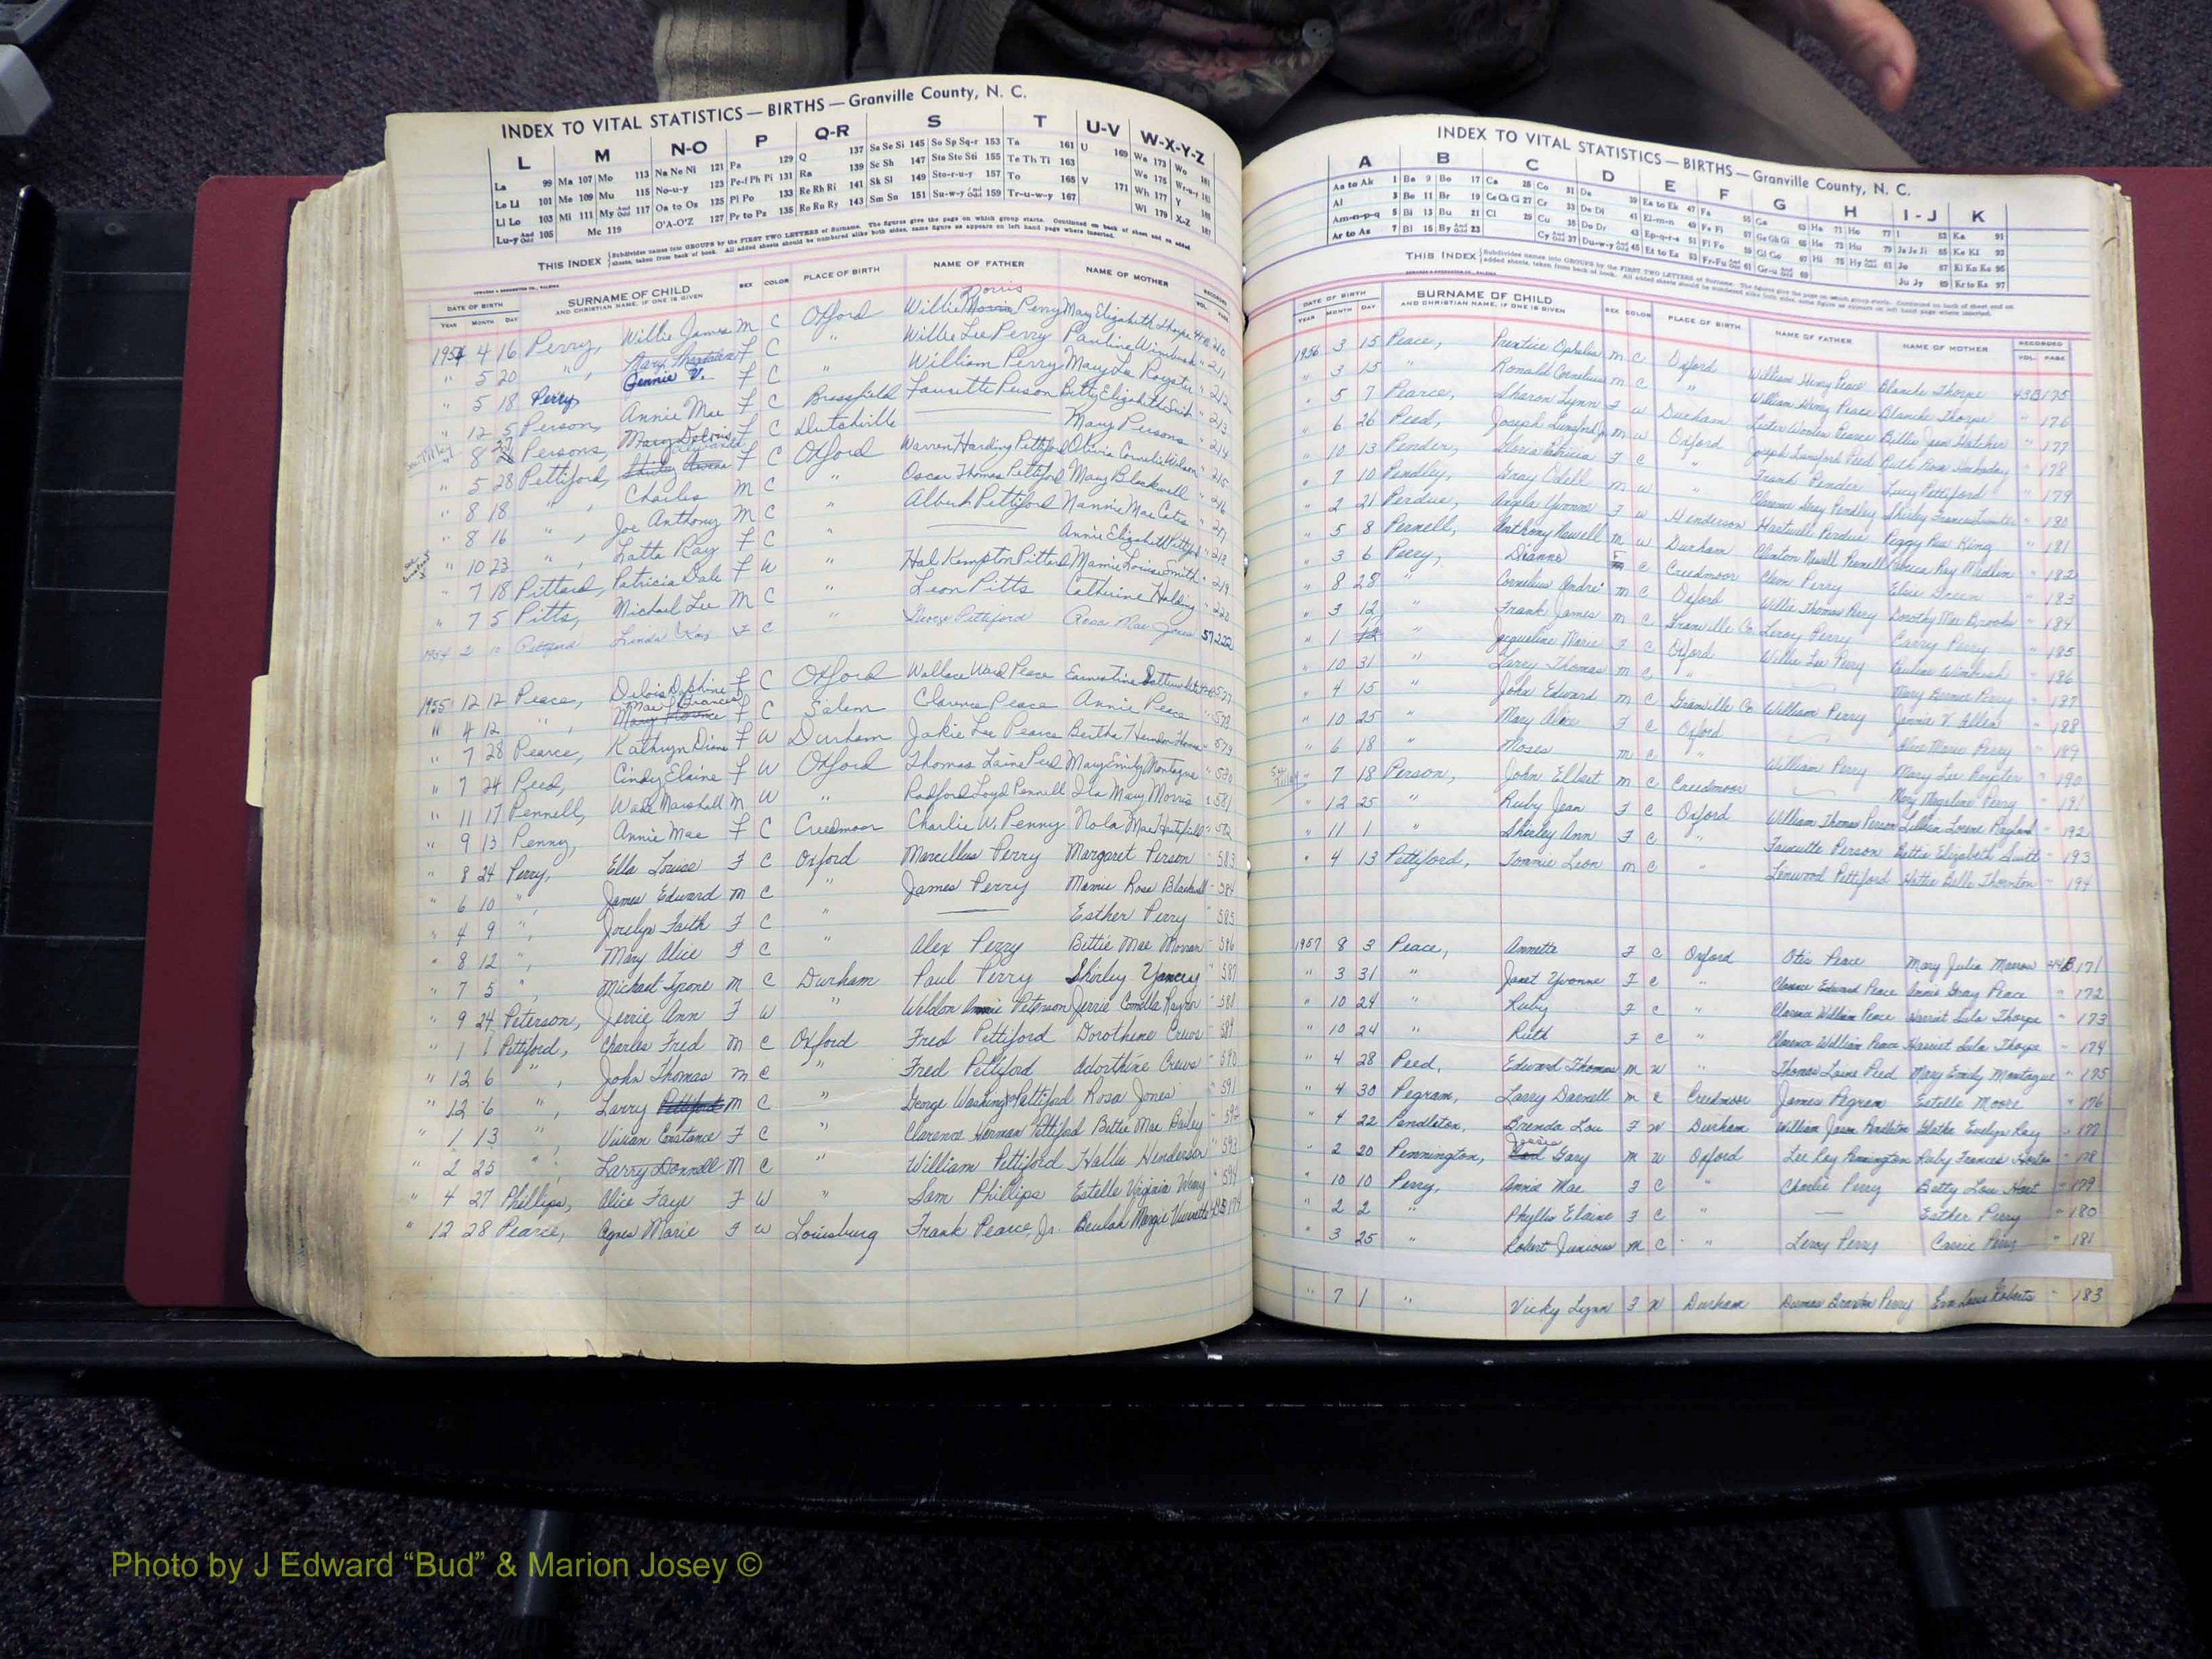 INDEX TO VITAL STATISTICS — BIRTHS — Granville County, N. C.
L M N-O P Q-R S T U-V W-X-Y-Z
La 99 Ma 107 Mo 113 Na Ne Ni 121 Pa 129 Q 137 Sa Se Si 145 So Sp Sq-r 153 Ta 161 U 169 Wa 173 Wo 181
Le Li 101 Me 109 Mu 115 No-u-y 123 Pe-f Ph Pi 131 Ra 139 Sc Sh 147 Sta Ste Sti 155 Te Th Ti 163 We 175
Ll Lo 103 Mi 111 My And Odd 117 Oa to Os 125 Pl Po 133 Re Rh Ri 141 Sk Sl 149 Sto-r-u-y 157 To 165 V 171 Wh 177 Y
Lu-y And Odd 105 Mc 119 O'A-O'Z 127 Pr to Pz 135 Ro Ru Ry 143 Sm Sn 151 Su-w-y And Odd 159 Tr-u-w-y 167 Wi 179 X-Z 187
THIS INDEX Subdivides names into GROUPS by the FIRST TWO LETTERS of Surname. The figures give the page on which group starts. Continued on back of sheet and on added sheets, taken from back of book. All added sheets should be numbered alike both sides, same figure as appears on left hand page where inserted.
DATE OF BIRTH SURNAME OF CHILD SEX COLOR PLACE OF BIRTH NAME OF FATHER NAME OF MOTHER RECORDED
YEAR MONTH DAY AND CHRISTIAN NAME, IF ONE IS GIVEN VOL. PAGE
1954 4 16 Perry, Willie James M C Oxford Willie Morris Perry Mary Elizabeth Thorpe 210
" 5 20 " , Mary Magdalene F C " Willie Lee Perry Pauline Wimbush " 211
" 5 18 Perry Jennie V. F C " William Perry Mary Lee Royster " 212
" 12 5 Person, Annie Mae F C Brassfield Faucette Person Betty Elizabeth Smith " 213
" 8 Persons, Mary Deloris F C Dutchville Mary Persons " 214
" 5 28 Pettiford, F C Oxford Warren Harding Pettiford Olivia Cornelia Wilson " 215
" 8 18 " , Charles M C " Oscar Thomas Pettiford Mary Blackwell " 216
" 8 16 " , Joe Anthony M C " Albert Pettiford Nannie Mae Cates " 217
" 10 23 " , Latta Ray F C " Annie Elizabeth Pettiford " 218
" 7 18 Pittard, Patricia Dale F W " Hal Kempton Pittard Mamie Louise Smith " 219
" 7 5 Pitts, Michael Lee M C " Leon Pitts Catherine Holding " 220
1954 2 10 Pettiford Linda Kay F C George Pettiford Rosa Mae Jones 57 222
1955 12 12 Peace, Delois Delphine F C Oxford Wallace Ward Peace Earnestine 577
" 4 12 " , Mae Frances F C Salem Clarence Peace Annie Peace " 578
" 7 28 Pearce, Kathryn Diane F W Durham Jakie Lee Pearce Bertha Herndon " 579
" 7 24 Peed, Cindy Elaine F W Oxford Thomas Laine Peed Mary Emily Montague " 580
" 11 17 Pennell, Wade Marshall M W " Radford Loyd Pennell Ila Mary Morris " 581
" 9 13 Penny, Annie Mae F C Creedmoor Charlie W. Penny Nola Mae Hartsfield " 582
" 8 24 Perry, Ella Louise F C Oxford Marcellus Perry Margaret Person " 583
" 6 10 " , James Edward M C " James Perry Mamie Rosa Blackwell " 584
" 4 9 " , Jocelyn Faith F C " Esther Perry " 585
" 8 12 " , Mary Alice F C " Alex Perry Bettie Mae Morran " 586
" 7 5 " , Michael Tyrone M C Durham Paul Perry Shirley Yancey " 587
" 9 24 Peterson, Jerrie Ann F W " Weldon Peterson Jerrie Comella Raynor " 588
" 1 1 Pettiford, Charles Fred M C Oxford Fred Pettiford Dorothene Crews " 589
" 12 6 " , John Thomas M C " Fred Pettiford Adorthine Crews " 590
" 12 6 " , Larry M C " George Washington Pettiford Rosa Jones " 591
" 1 13 " , Vivian Constance F C " Clarence Herman Pettiford Bettie Mae Bailey " 592
" 2 25 " , Larry Donnell M C " William Pettiford Hallie Henderson " 593
" 4 27 Phillips, Alice Faye F W " Sam Phillips Estelle Virginia " 594
" 12 28 Pearce, Agnes Marie F W Louisburg Frank Pearce, Jr. Beulah Margie
INDEX TO VITAL STATISTICS — BIRTHS — Granville County, N. C.
A B C D E F G H I-J K
Aa to Ak 1 Ba 9 Bo 17 Ca 25 Co 31 Da 39 Ea to Ek 47 Fa 55 Ga 63 Ha 71 Ho 77 I 83 Ka 91
Al 3 Be 11 Br 19 Ce Ch Ci 27 Cr 33 De Di 41 El-m-n 49 Fe Fi 57 Ge Gh Gi 65 He 73 Hu 79 Ja Je Ji 85 Ke Kl 93
Am-n-p-q 5 Bi 13 Bu 21 Cl 29 Cu 35 Do Dr 43 Ep-q-r-s 51 Fl Fo 59 Gl Go 67 Hi 75 Hy And Odd 81 Jo 87 Ki Kn Ko 95
Ar to Az 7 Bl 15 By And Odd 23 Cy And Odd 37 Du-w-y And Odd 45 Et to Ez 53 Fr-Fu And Odd 61 Gr-u And Odd 69 Ju Jy 89 Kr to Kz 97
THIS INDEX Subdivides names into GROUPS by the FIRST TWO LETTERS of Surname. The figures give the page on which group starts. Continued on back of sheet and on added sheets, taken from back of book. All added sheets should be numbered alike both sides, same figure as appears on left hand page where inserted.
DATE OF BIRTH SURNAME OF CHILD SEX COLOR PLACE OF BIRTH NAME OF FATHER NAME OF MOTHER RECORDED
YEAR MONTH DAY AND CHRISTIAN NAME, IF ONE IS GIVEN VOL. PAGE
1956 3 15 Peace, Prentice Ophelia M C Oxford William Henry Peace Blanche Thorpe 43B 175
" 3 15 " Ronald Cornelius M C " William Henry Peace Blanche Thorpe " 176
" 5 7 Pearce, Sharon Lynn F W Durham Lester Wooten Pearce Billie Jean Hatcher " 177
" 6 26 Peed, Joseph Lunsford Jr M W Oxford Joseph Lunsford Peed Ruth Rose " 178
" 10 13 Pender, Gloria Patricia F C " Frank Pender Lucy Pettiford " 179
" 7 10 Pendley, Gray Odell M W " Clarence Gray Pendley Shirley Frances " 180
" 2 21 Perdue, Angela Yvonne F W Henderson Hartwell Perdue Peggy Rae King " 181
" 5 8 Pernell, Anthony Newell M W Durham Clinton Newell Pernell Rebecca Ray " 182
" 3 6 Perry, Dianne F C Creedmoor Clem Perry Elsie Green " 183
" 8 28 " Cornelius Andre' M C Oxford Willie Thomas Perry Dorothy Mae Brooks " 184
" 3 12 " Frank James M C Granville Co Leroy Perry Carry Perry " 185
" 1 12 " Jequeline Marie F C Oxford Willie Lee Perry Pauline Wimbush " 186
" 10 31 " Larry Thomas M C " Mary Bernice Perry " 187
" 4 15 " John Edward M C Granville Co William Perry Jennie V Allen " 188
" 10 25 " Mary Alice F C Oxford Alice Marie Perry " 189
" 6 18 " Moses M C " William Perry Mary Lee Royster " 190
" 7 18 Person, John Elbert M C Creedmoor Mary Magaline Perry " 191
" 12 25 " Ruby Jean F C Oxford William Thomas Person Lillian Lorene Ragland " 192
" 11 1 " Shirley Ann F C " Faucette Person Bettie Elizabeth Smith " 193
" 4 13 Pettiford, Tommie Leon M C " Linwood Pettiford Hattie Belle Thornton " 194
1957 8 3 Peace, Annette F C Oxford Otis Peace Mary Julia Marrow 44B 171
" 3 31 " Janet Yvonne F C " Clarence Edward Peace Annie Gray Peace " 172
" 10 24 " Ruby F C " Clarence William Peace Harriet Lula Thorpe " 173
" 10 24 " Ruth F C " Clarence William Peace Harriet Lula Thorpe " 174
" 4 28 Peed, Edward Thomas M W " Thomas Laine Peed Mary Emily Montague " 175
" 4 30 Pegram, Larry Darnell M C Creedmoor James Pegram Estelle Moore " 176
" 4 22 Pendleton, Brenda Lou F W Durham William Jason Pendleton Evelyn Ray " 177
" 2 20 Pennington, Gary M W Oxford Lee Roy Pennington Ruby Frances Horton " 178
" 10 10 Perry, Annie Mae F C " Charlie Perry Betty Lou Hart " 179
" 2 2 " Phyllis Elaine F C " Esther Perry " 180
" 3 25 " Robert Junious M C " Leroy Perry Carrie Perry " 181
" 7 1 " Vicky Lynn F W Durham Dumas Braxton Perry Eva Lane Roberts " 183
Photo by J Edward “Bud” & Marion Josey ©